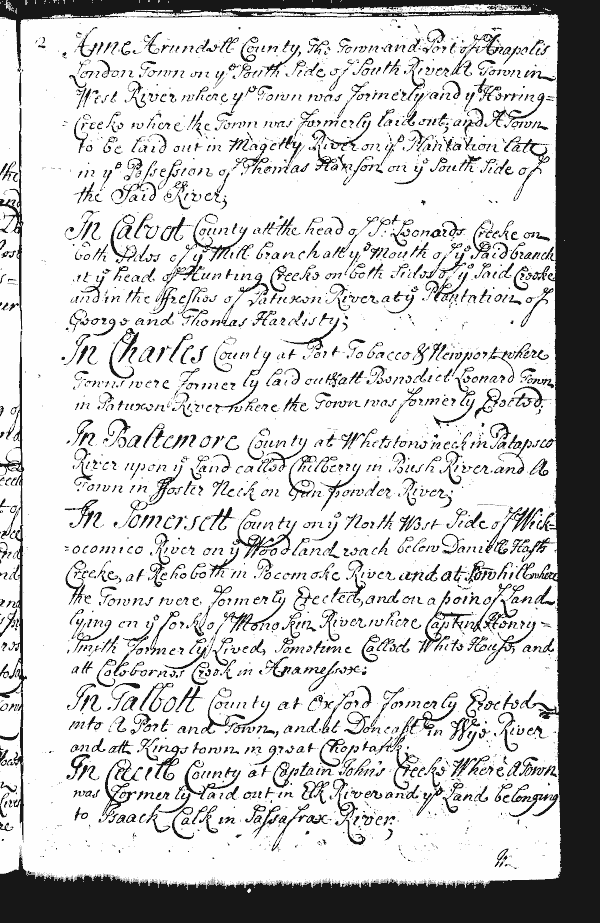 2 Anne Arundell County, The Town and Port of Anapolis
London Town on ye South Side of South River A Town in
West River where ye Town was formerly and yt Herring=
=Creeke where the Town was formerly laid out; and A Town
to be laid out in Magetty River on ye Plantation late
in ye Possession of Thomas Hanson on ye South Side of
the Said River;
In Calvot County att the head of St Leonards Creeke on
both Sides of ye Mill branch att ye Mouth of ye Said branch
at ye head of Hunting Creeke on both Sides of ye Said Creeke
and in the Freshes of Patuxon River at ye Plantation of
George and Thomas Hardisty;
In Charles County at Port Tobacco & Newport where
Towns were formerly laid out & att Benedict Leonard Town
in Patuxon River where the Town was formerly Erected;
In Baltemore County at Whetstone neck in Patapsco
River upon ye Land called Chilberry in Bush River and A
Town in Foster Neck on Gunpowder River;
In Somersett County on ye North West Side of Wick=
=ocomico River on ye Woodland reach below Daniell Hasts
Creeke, at Rehoboth in Pocomoke River and at Snowhill where
the Towns were formerly Erected, and on a poin of Land
lying on ye fork of Monokin River where Captin Henry=
Smyth formerly Lived, Sometime Called White House, and
att Colebornes Creek in Anamessex;
In Talbott County at Oxford formerly Erected
into A Port and Town, and at Doncaster in Wye River
and att Kingstown in great Choptank;
In Cecill County at Captain Johns Creeke Where A Town
was formerly laid out in Elk River and ye Land belonging
to Isaack Calk in Sassafrax River;